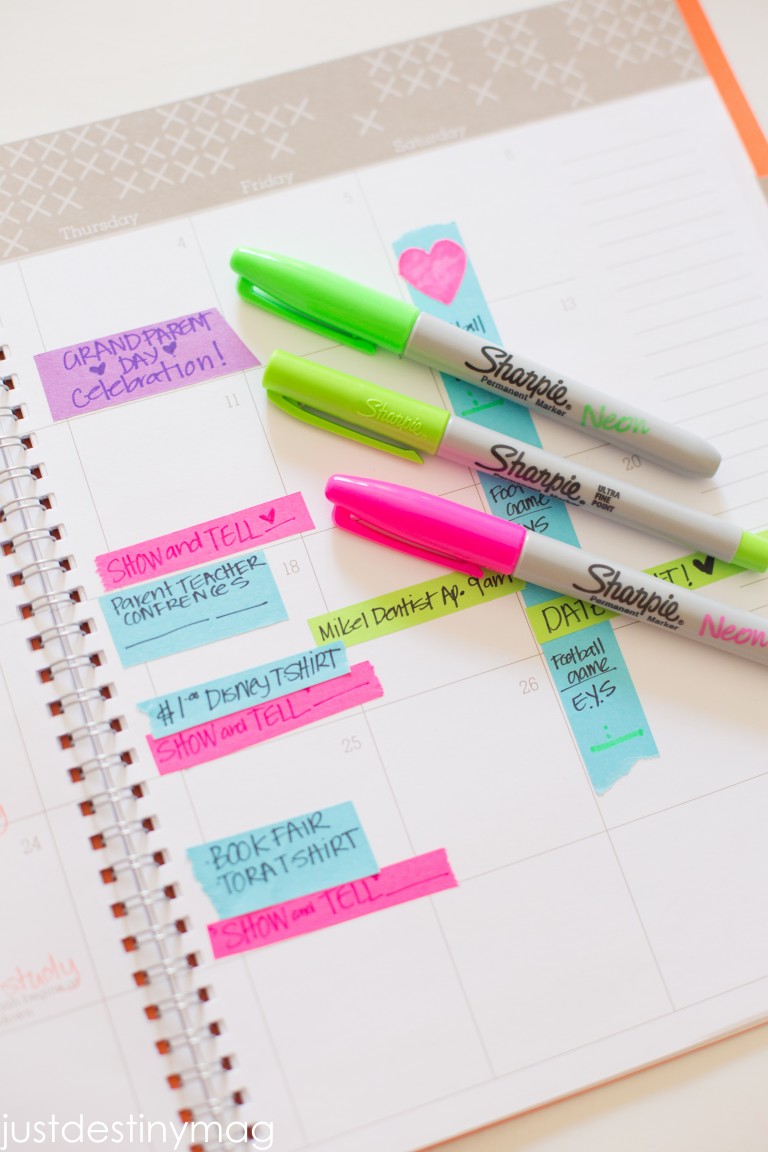 Thursday
Friday
Saturday
4
5
6
GRANDPARENT
DAY
Celebration!
11
13
Sharpie
Permanent Marker
Neon
Sharpie
Sharpie
ULTRA
FINE
POINT
20
SHOW and TELL
Football
game
Parent TEACHER
CONFRENCES
18
Mikel Dentist Ap. 9am
DATE
!
Sharpie
Permanent Marker
Neon
#1- Disney TSHIRT
SHOW and TELL
Football
game
E.Y.S
26
25
24
BOOK FAIR
TORAT SHIRT
SHOW and TELL
study
justdestinymag